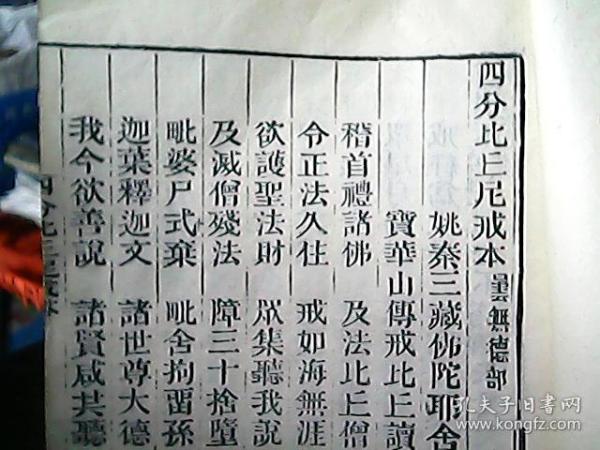 四分比丘尼戒本 曇無德部
姚秦三藏佛陀耶舍
寶華山傳戒比丘讀
稽首禮諸佛 及法比丘僧
令正法久住 戒如海無涯
欲護聖法財 眾集聽我說
及滅僧殘法 障三十捨墮
毗婆尸式棄 毗舍拘留孫
迦葉釋迦文 諸世尊大德
我今欲善說 諸賢咸共聽
四分比丘尼戒本
孔夫子旧书网
www.kongfz.com